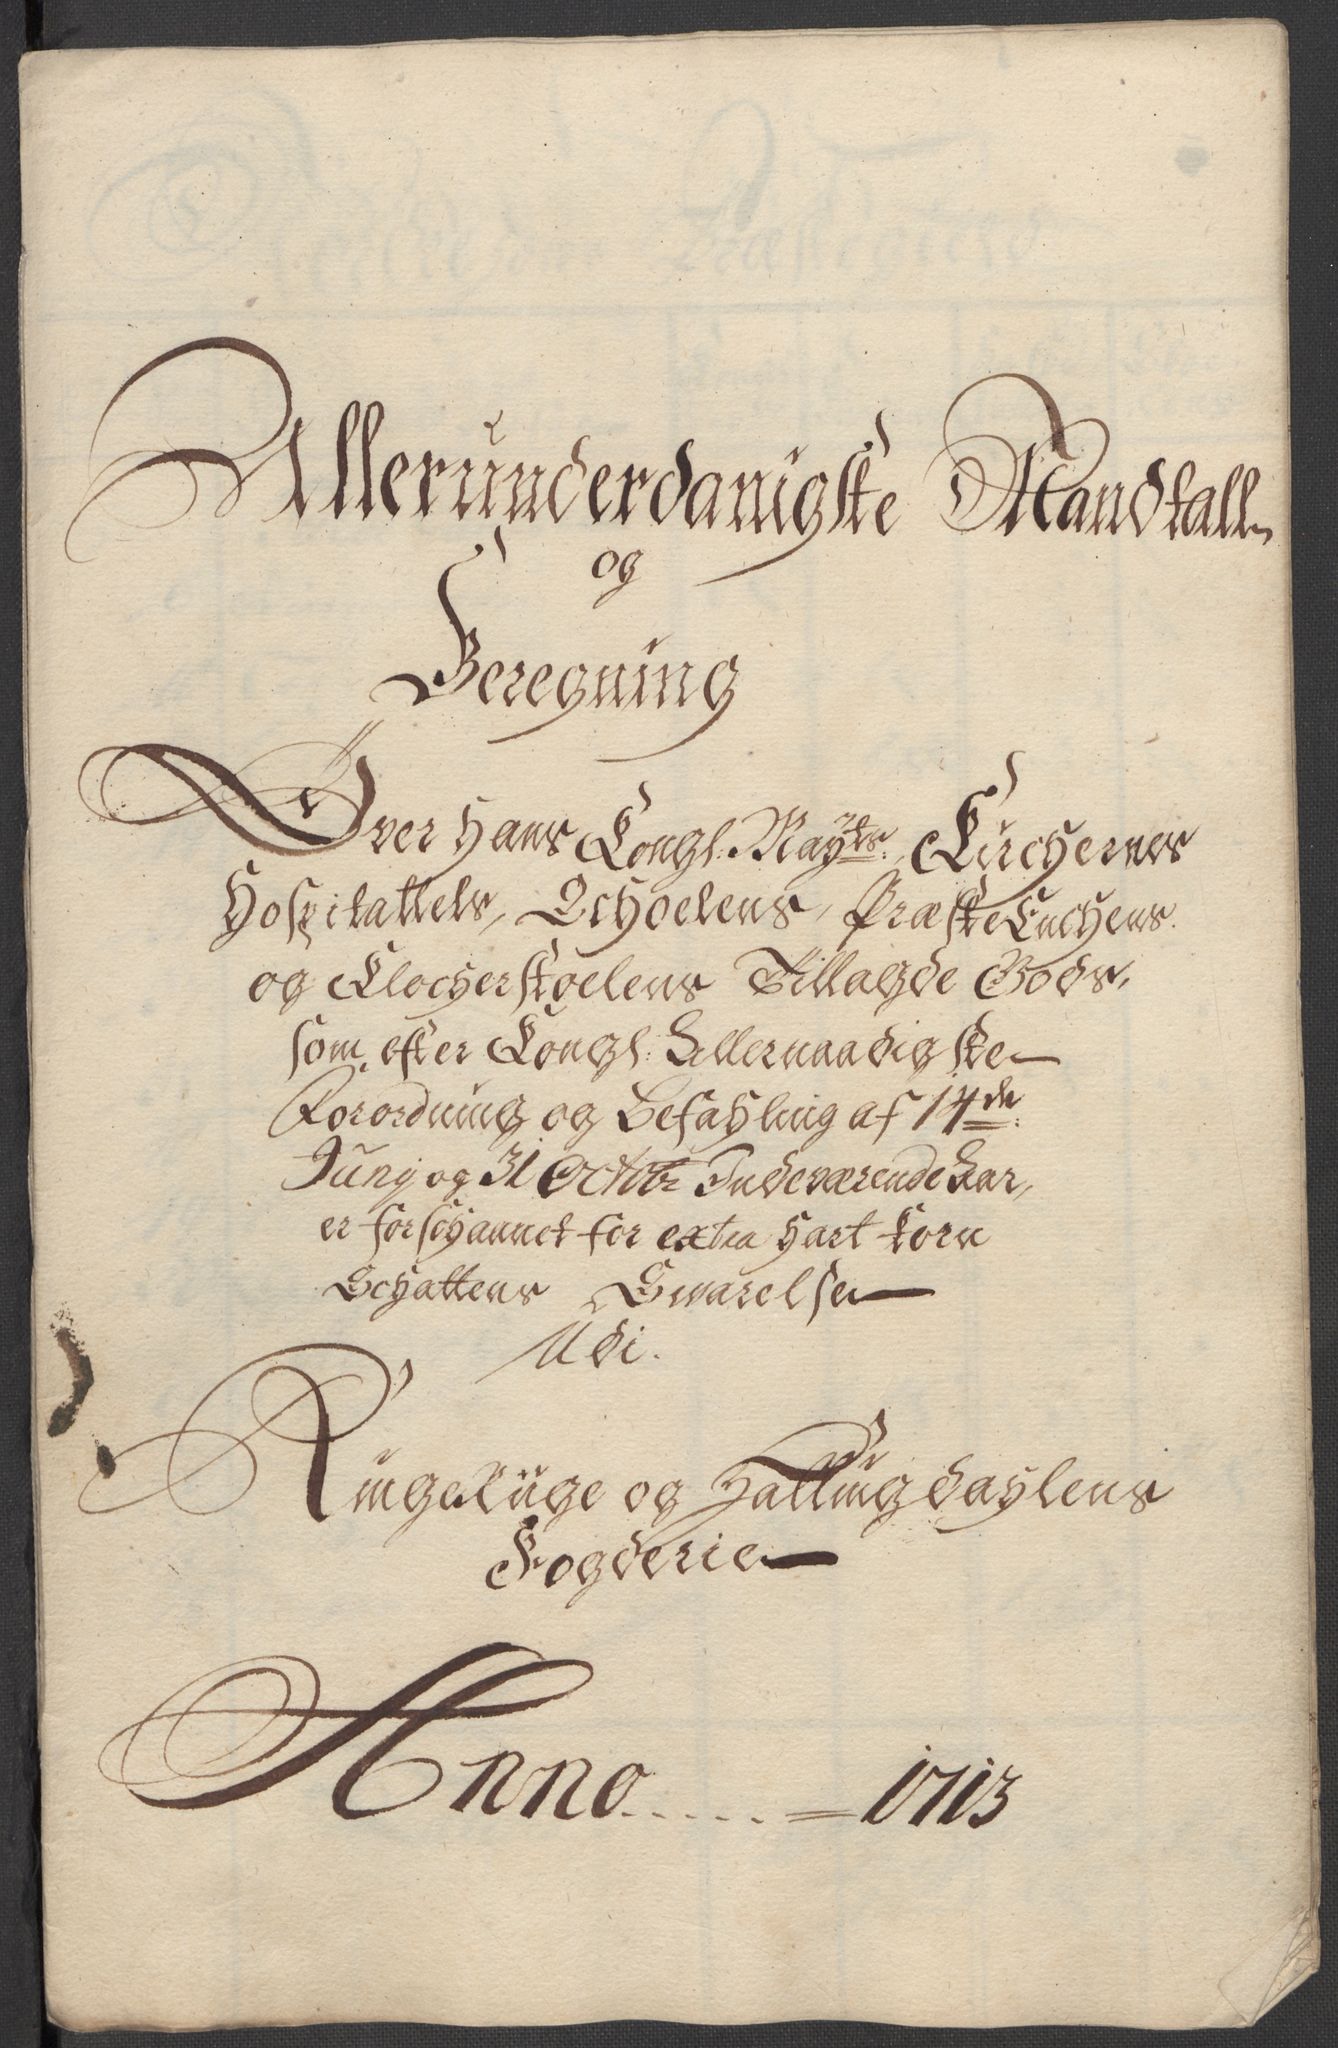 Allerunderdanigste Mandtall
og
Beregning
Over Hans Kongl: Mayts: Kirchernes
Hospitallets, Schoelens, Præste Enchens
og Klocherstoelens Tillagde Gods,
som efter Kongl: Allernaadigste
Forordning og Befahling af 14de:
Junij og 31 Octobr Indeværende Aar,
er forschaanet for extra Hart Korn
Schattens Svarelse
Udi.
Ringerige og Hallingdahlens
Fogderie
Anno ..... = 1713